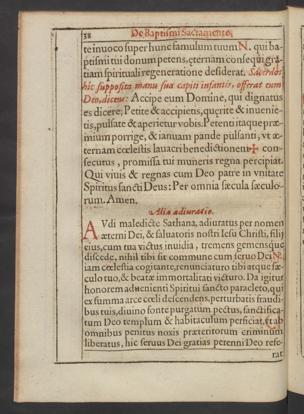 38
De Baptismi Sacramento,
te inuoco super hunc famulum tuum N. qui ba-
ptismi tui donum petens, eternam consequi gra-
tiam spirituali regeneratione desiderat. Sacerdos
hic supposita manu sua capiti infantis, offerat eum
Deo, dicens: Accipe eum Domine, qui dignatus
es dicere; Petite & accipietis, quęrite & inuenie-
tis, pulsate & aperietur vobis. Petenti itaque præ-
mium porrige, & ianuam pande pulsanti, vt æ-
ternam cœlestis lauacri benedictionem ✠ con-
secutus, promissa tui muneris regna percipiat.
Qui viuis & regnas cum Deo patre in vnitate
Spiritus sancti Deus: Per omnia sæcula sæculo-
rum. Amen.
Alia adiuratio.
AVdi maledicte Sathana, adiuratus per nomen
æterni Dei, & saluatoris nostri Iesu Christi, filij
eius, cum tua victus inuidia, tremens gemensque
discede, nihil tibi sit commune cum seruo Dei N.
iam cœlestia cogitante, renunciaturo tibi atque sæ-
culo tuo, & beatæ immortalitati victuro. Da igitur
honorem aduenienti Spiritui sancto paracleto, qui
ex summa arce cœli descendens, perturbatis fraudi-
bus tuis, diuino fonte purgatum pectus, sanctifica-
tum Deo templum & habitaculum perficiat, & ab
omnibus penitus noxis præteritorum criminum
liberatus, hic seruus Dei gratias perenni Deo refe-
rat